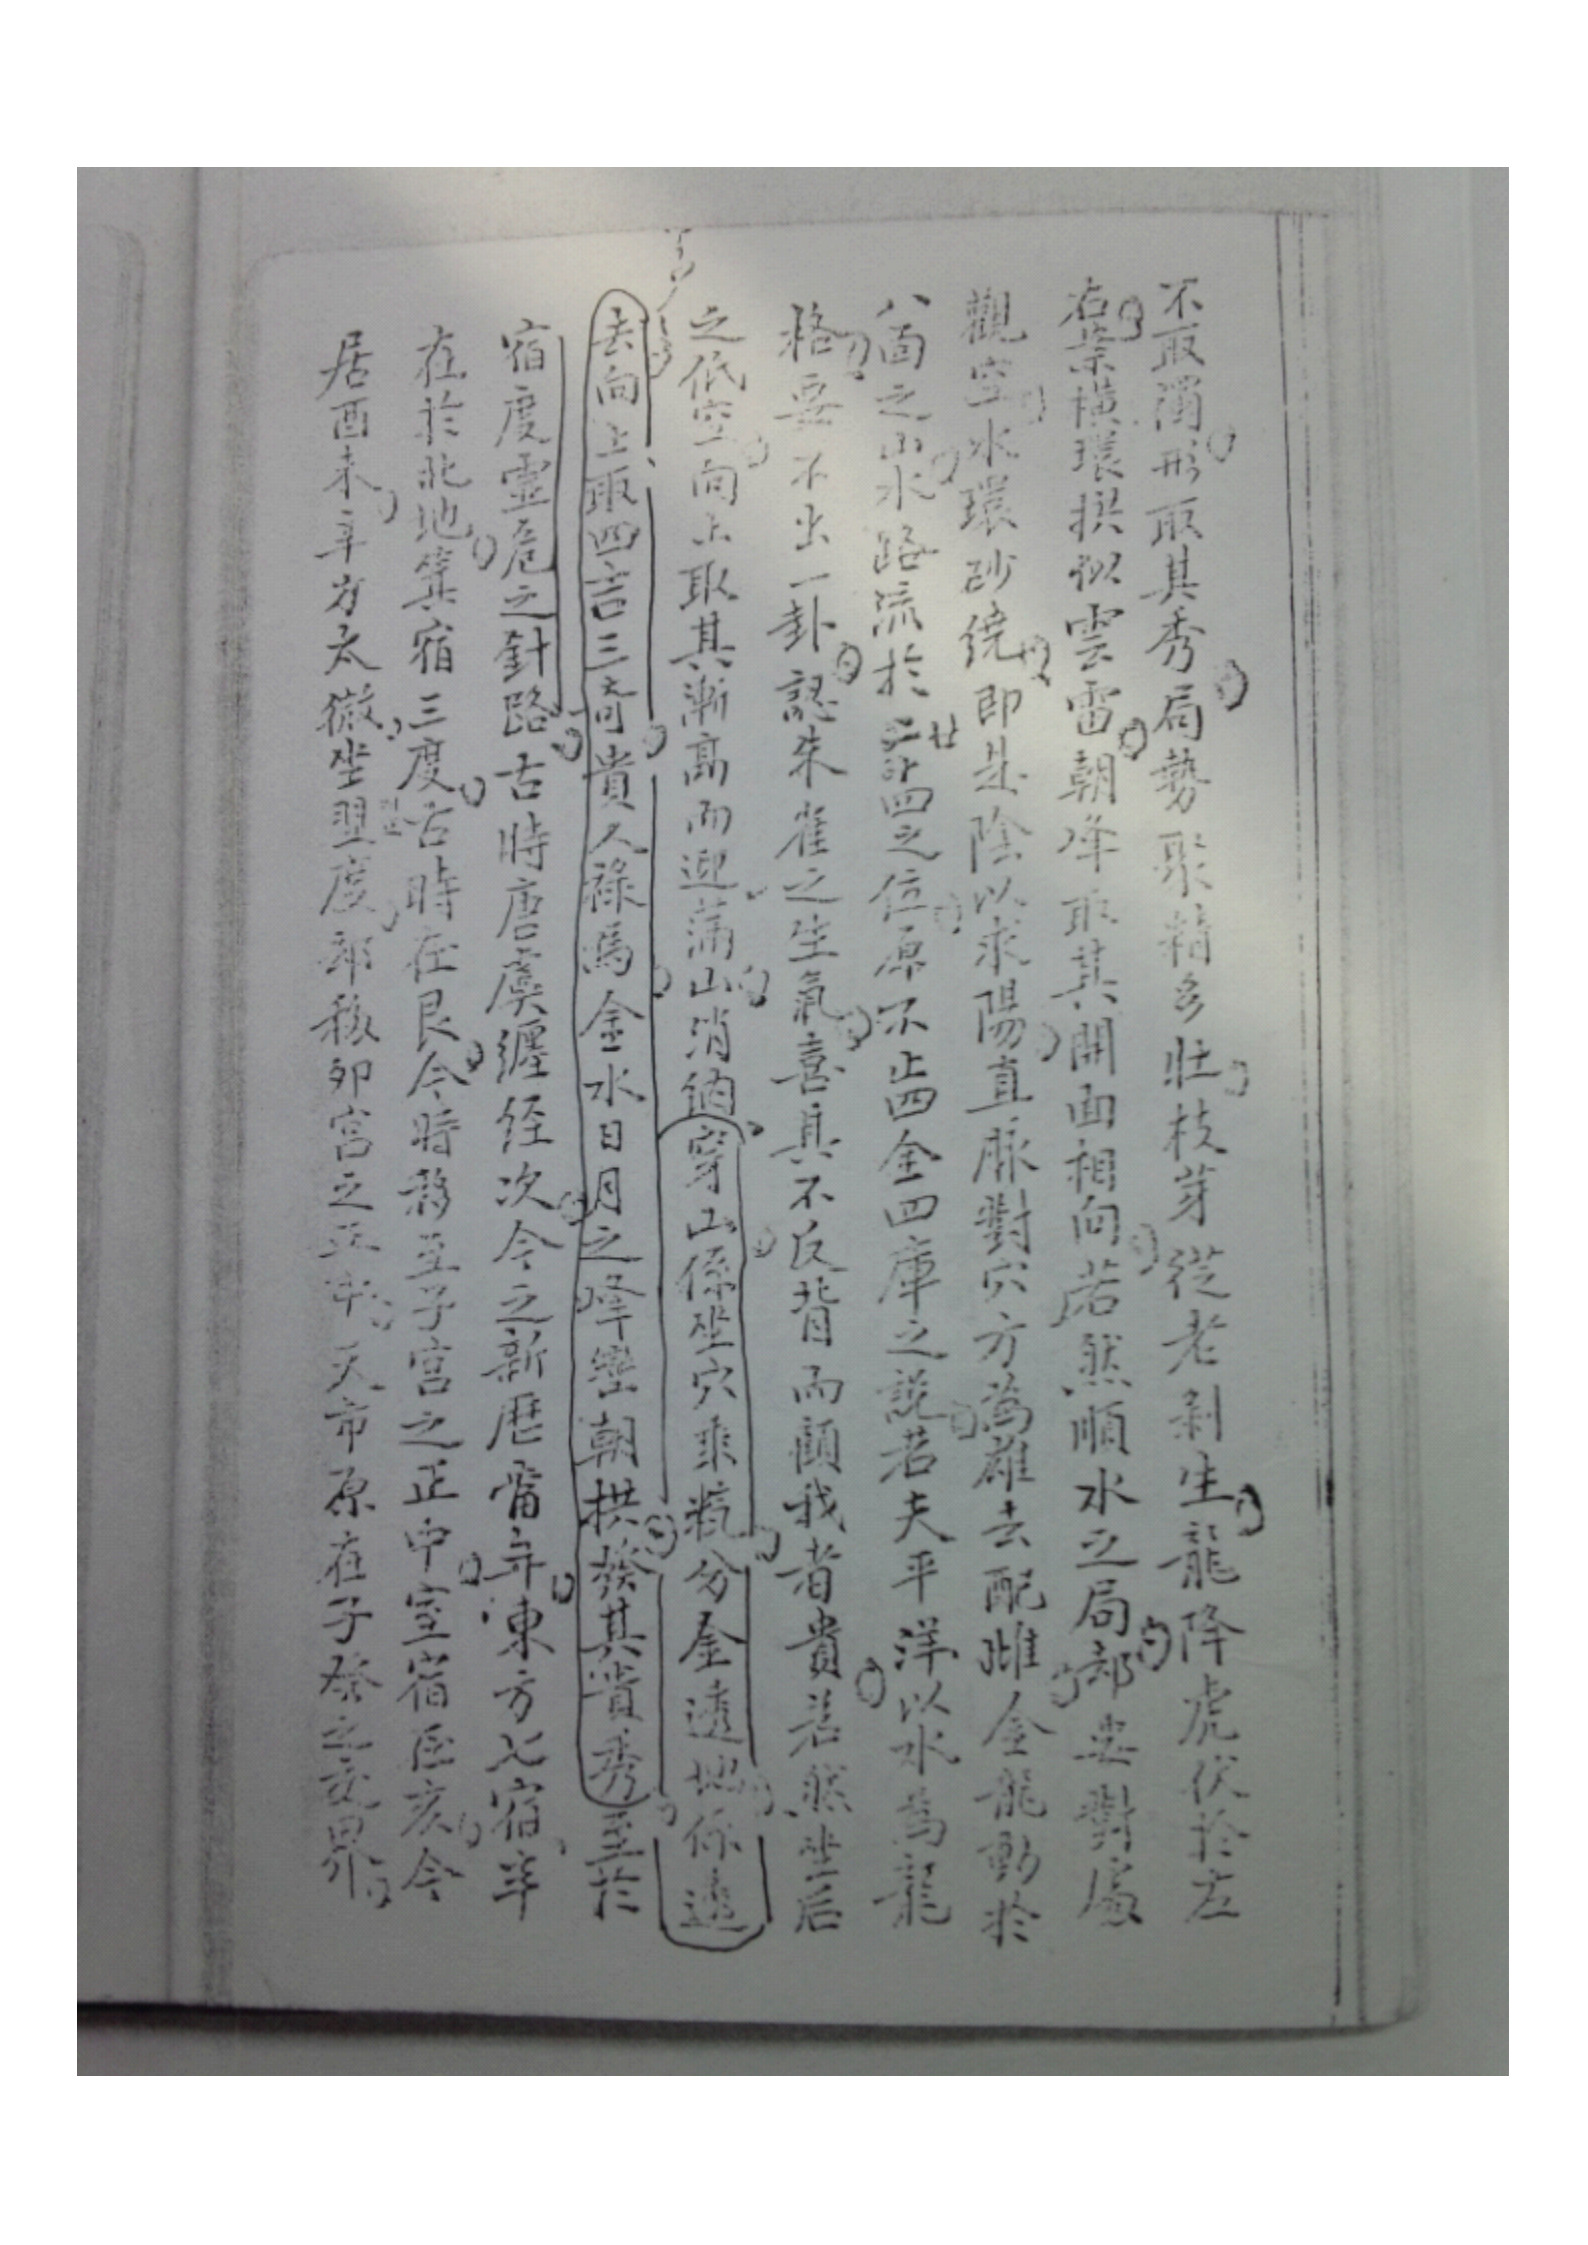 不取濁形取其秀局勢聚精多壯枝芽從老剥生龍降虎伏於左
右案橫環拱似雲雷朝峰取其開面相向若然順水之局却要對
觀空水環砂繞即是陰以求陽直脉對穴方為雄去配雌金龍動於
八面之山水路流於廿四之位原不止四金四庫之說若夫平洋以水為龍
格要不出一卦認朱雀之生氣喜其不反背而顧我者貴若然坐后
之低空向上取其漸高而迎蒲山消納穿山係坐穴乘氣分金透地係透
去向上取四吉三奇貴人祿馬金水日月之峰巒朝拱發其貴秀至於
宿度靈危之針路古時唐虞纏经次今之新歷當弃東方七宿半
在於北地箕宿三度古時在艮今時移至子宮之正中室宿臣亥今
居酉未辛方太微坐翌度部移卯宮之正中天市原在子癸之交界